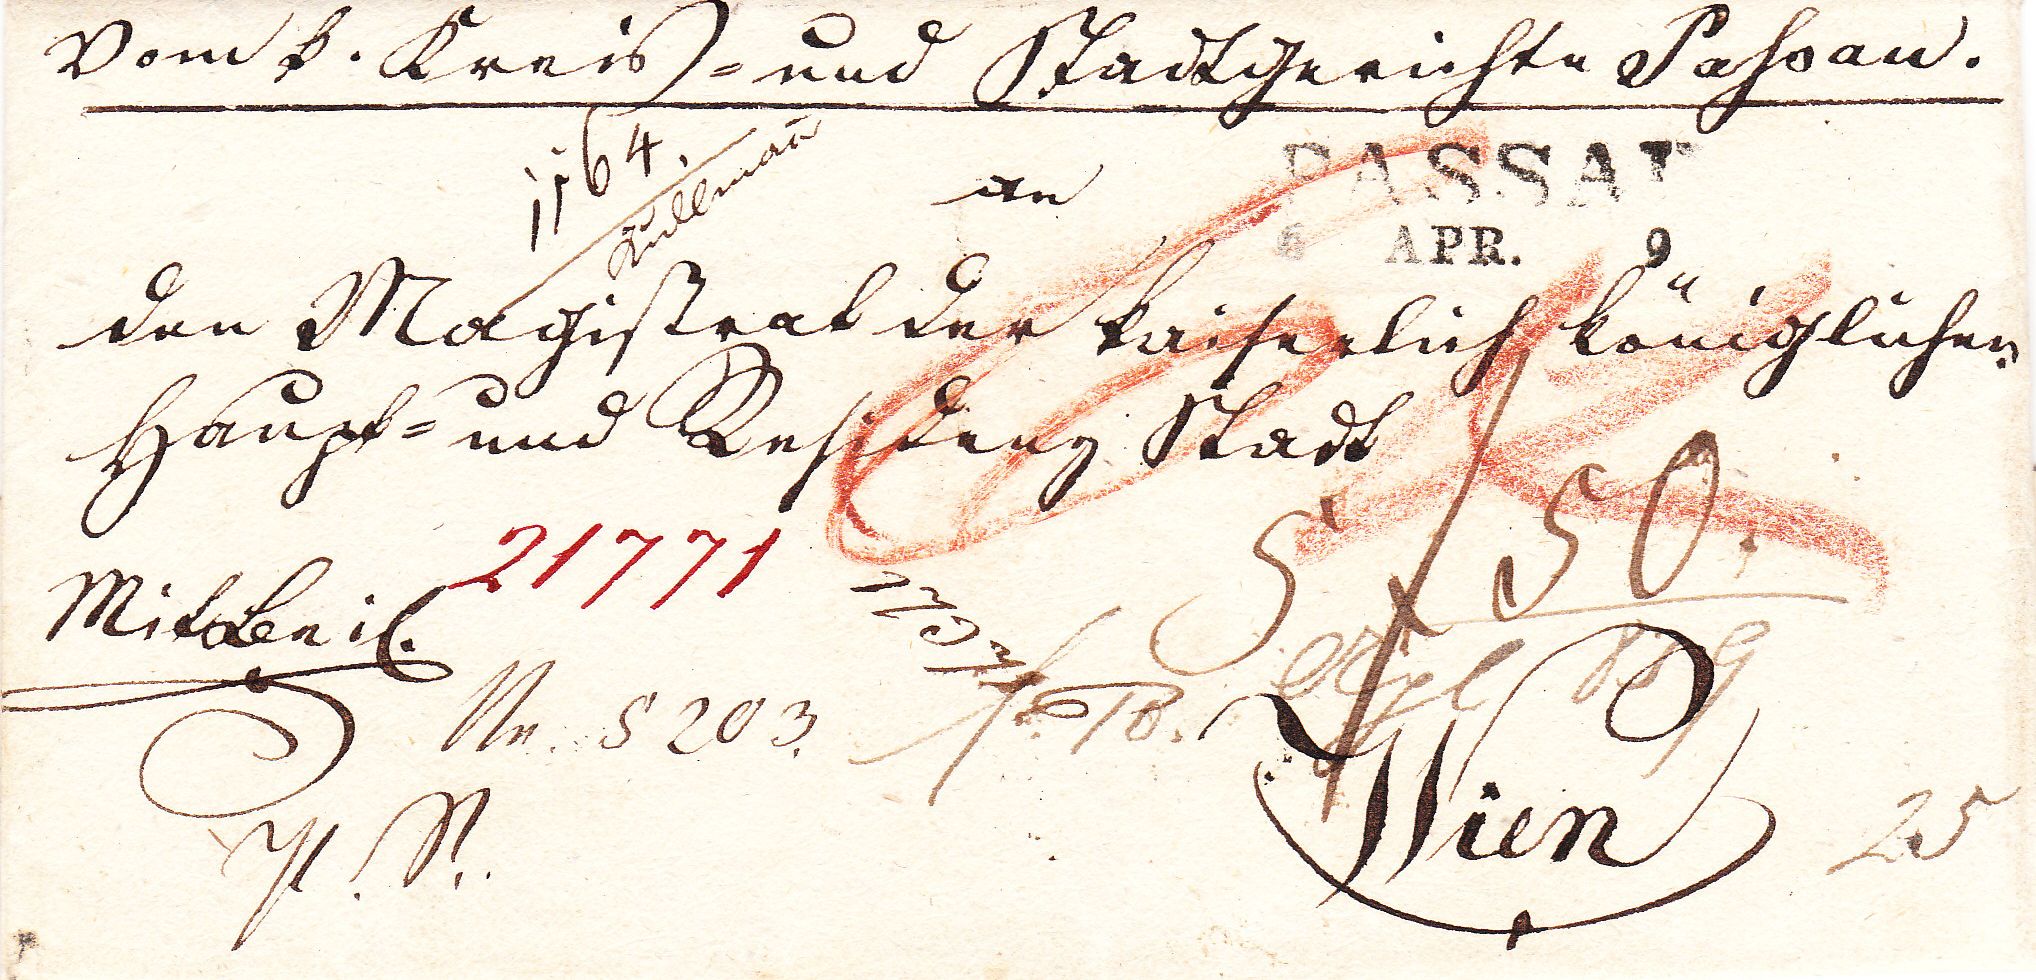 Vom k. Kreis- und Stadtgerichte Passau.
1564.
an
PASSAU
6 APR. 9
den Magistrat der kaiserlich königlichen
Haupt- und Residenz Stadt
21771
50.
Mit Beil.
Nr. 5203.
Wien
P. S.
25